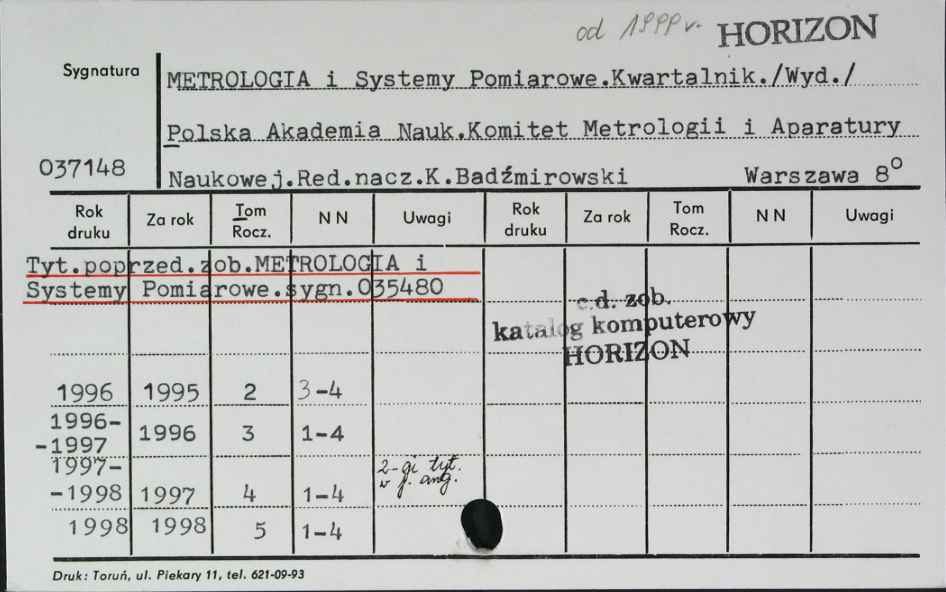 od 1999 r. HORIZON
Sygnatura
METROLOGIA i Systemy Pomiarowe.Kwartalnik./Wyd./
Polska Akademia Nauk.Komitet Metrologii i Aparatury
037148
Naukowej.Red.nacz.K.Badźmirowski Warszawa 8°
Rok druku Za rok Tom Rocz. N N Uwagi Rok druku Za rok Tom Rocz. N N Uwagi
Tyt.poprzed.zob.METROLOGIA i
Systemy Pomiarowe.sygn.035480
c.d. zob.
katalog komputerowy
HORIZON
1996 1995 2 3-4
1996-
-1997 1996 3 1-4
1997-
-1998 1997 4 1-4 2-gi tyt.
w j. ang.
1998 1998 5 1-4
Druk: Toruń, ul. Piekary 11, tel. 621-09-93